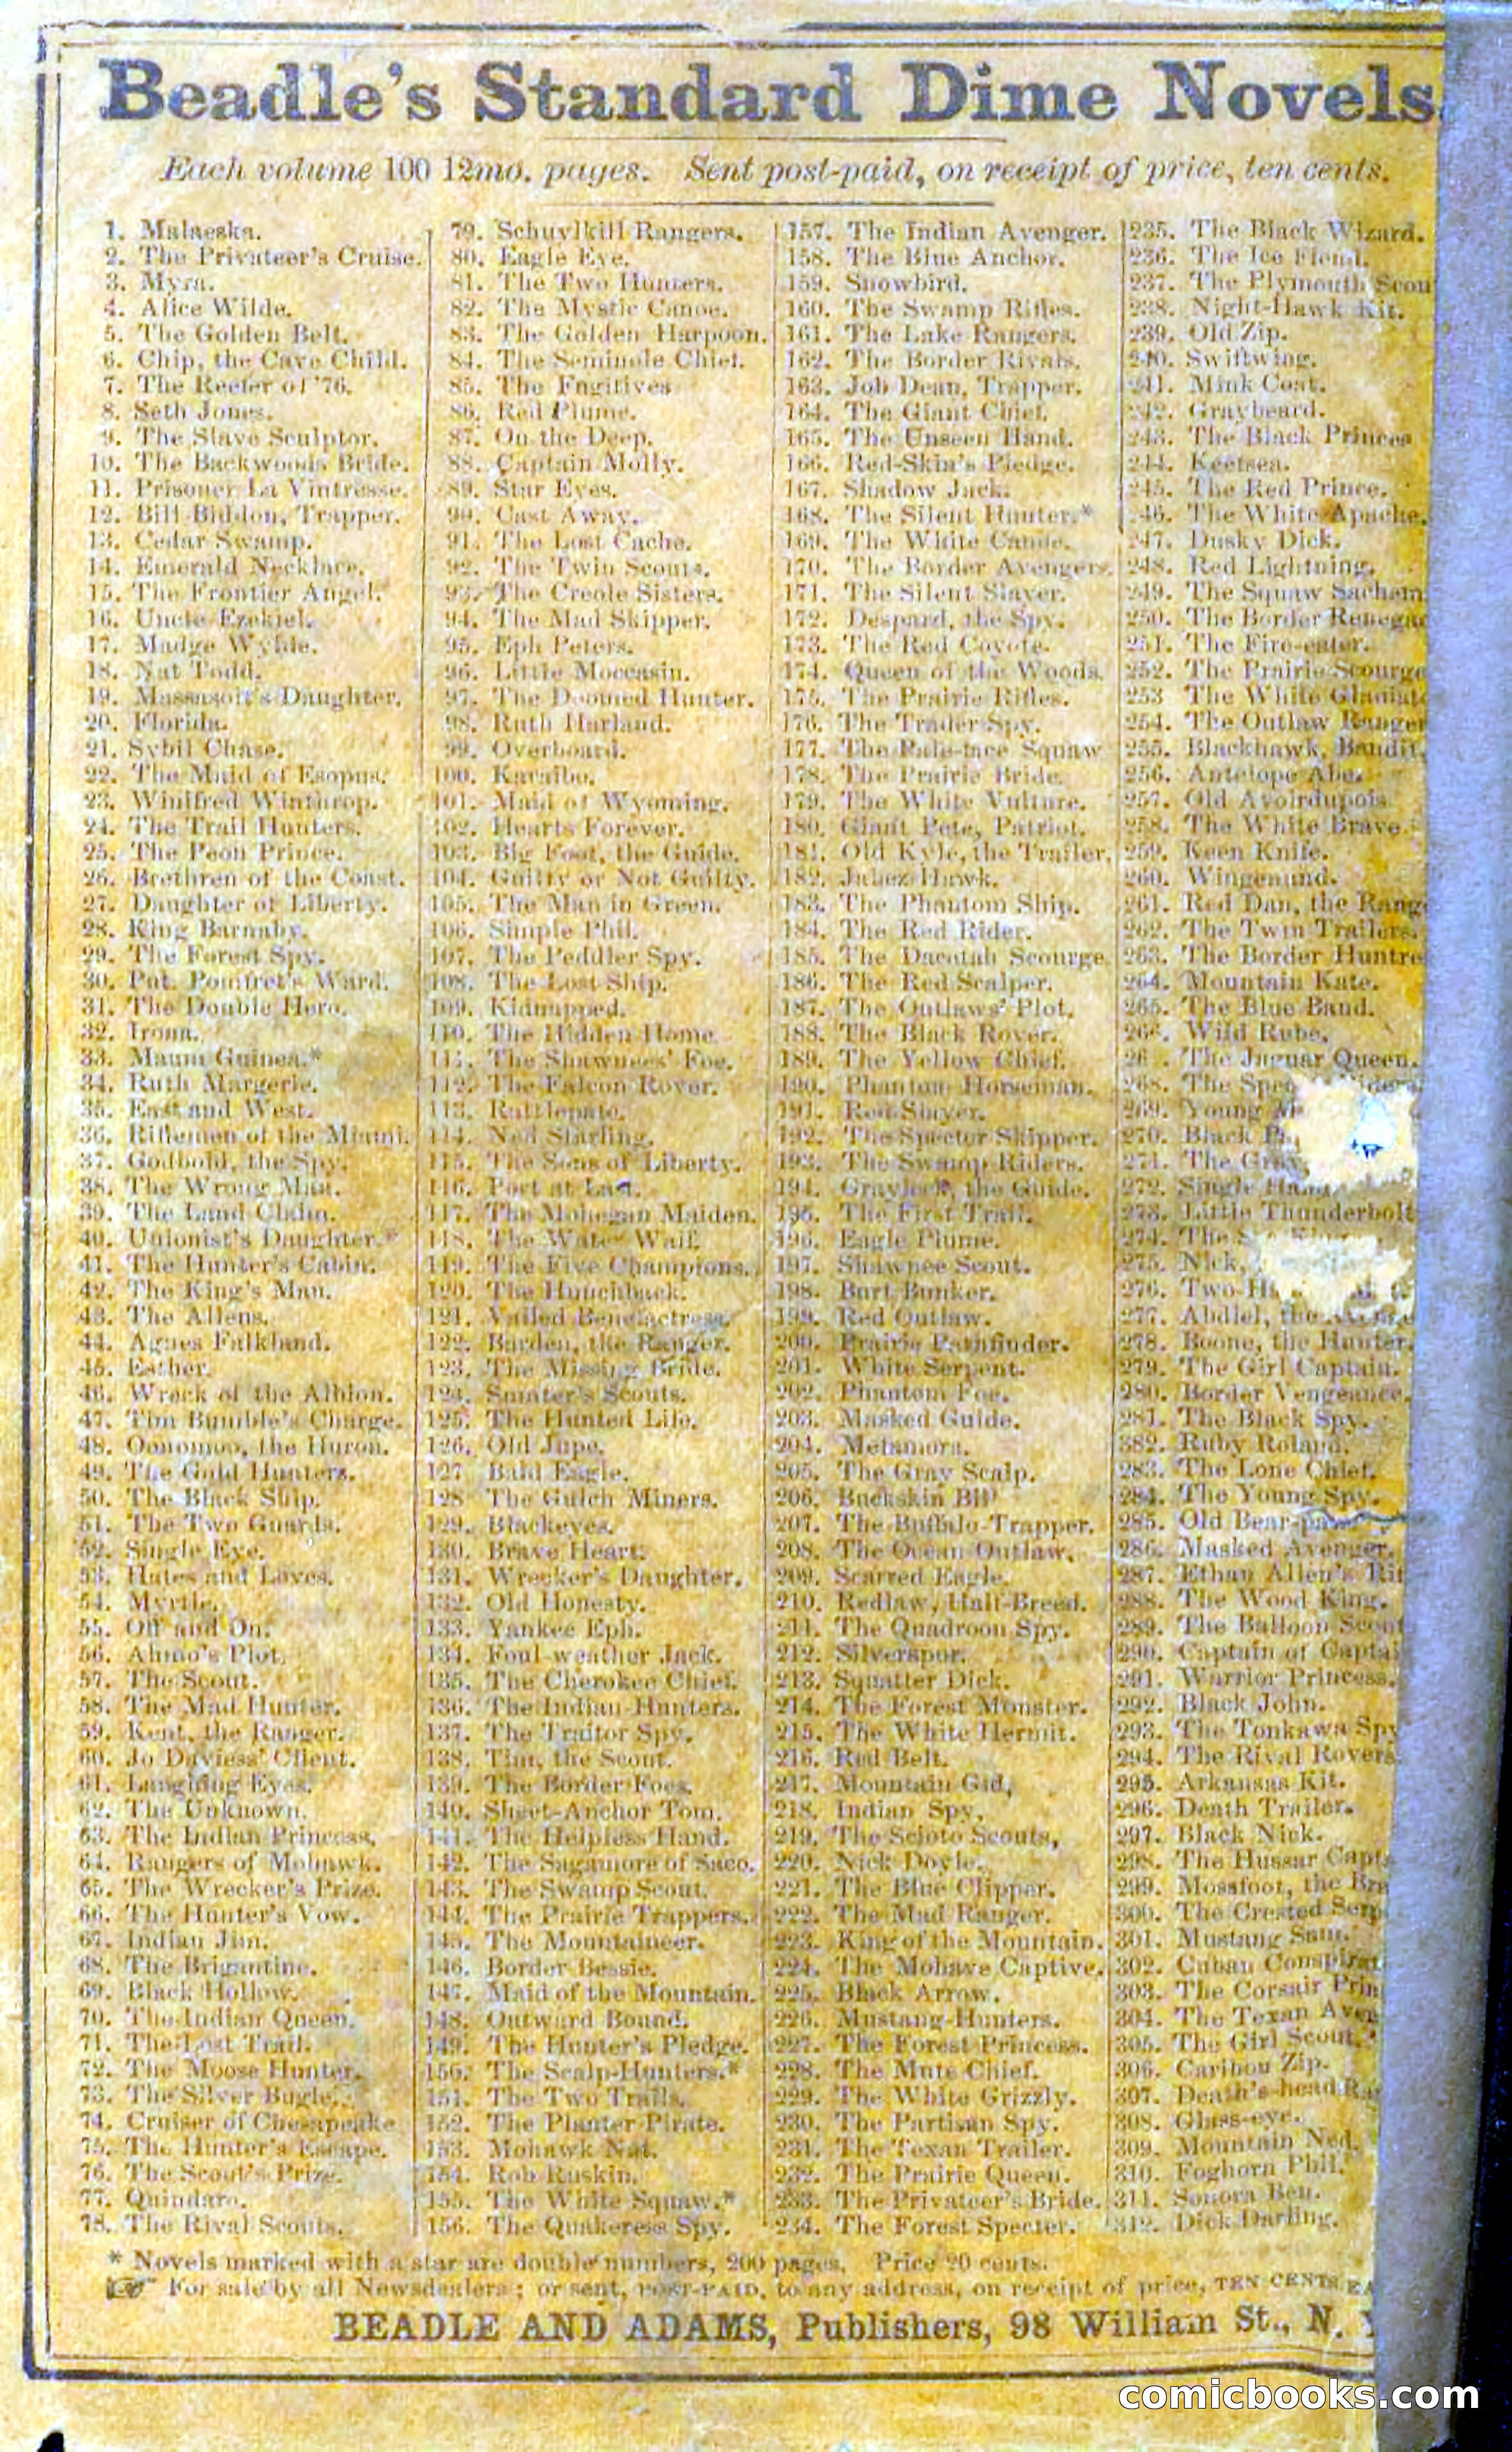 Beadle's Standard Dime Novels
Each volume 100 12mo. pages. Sent post-paid, on receipt of price, ten cents.
1. Malaeska.
2. The Privateer's Cruise.
3. Myra.
4. Alice Wilde.
5. The Golden Belt.
6. Chip, the Cave Child.
7. The Reefer of '76.
8. Seth Jones.
9. The Slave Sculptor.
10. The Backwoods Bride.
11. Prisoner La Vintresse.
12. Bill Biddon, Trapper.
13. Cedar Swamp.
14. Emerald Necklace.
15. The Frontier Angel.
16. Uncle Ezekiel.
17. Madge Wylde.
18. Nat Todd.
19. Massasoit's Daughter.
20. Florida.
21. Sybil Chase.
22. The Maid of Esopus.
23. Winifred Winthrop.
24. The Trail Hunters.
25. The Peon Prince.
26. Brethren of the Coast.
27. Daughter of Liberty.
28. King Barnaby.
29. The Forest Spy.
30. Put. Pomfret's Ward.
31. The Double Hero.
32. Irona.
33. Maum Guinea.*
34. Ruth Margerie.
35. East and West.
36. Riflemen of the Miami.
37. Godbold, the Spy.
38. The Wrong Man.
39. The Land Claim.
40. Unionist's Daughter.*
41. The Hunter's Cabin.
42. The King's Man.
43. The Allens.
44. Agnes Falkland.
45. Esther.
46. Wreck of the Albion.
47. Tim Bumble's Charge.
48. Oonomoo, the Huron.
49. The Gold Hunters.
50. The Black Ship.
51. The Two Guards.
52. Single Eye.
53. Hates and Loves.
54. Myrtle.
55. Off and On.
56. Ahmo's Plot.
57. The Scout.
58. The Mad Hunter.
59. Kent, the Ranger.
60. Jo Daviess' Client.
61. Laughing Eyes.
62. The Unknown.
63. The Indian Princess.
64. Rangers of Mohawk.
65. The Wrecker's Prize.
66. The Hunter's Vow.
67. Indian Jim.
68. The Brigantine.
69. Black Hollow.
70. The Indian Queen.
71. The Lost Trail.
72. The Moose Hunter.
73. The Silver Bugle.
74. Cruiser of Chesapeake
75. The Hunter's Escape.
76. The Scout's Prize.
77. Quindaro.
78. The Rival Scouts.
79. Schuylkill Rangers.
80. Eagle Eye.
81. The Two Hunters.
82. The Mystic Canoe.
83. The Golden Harpoon.
84. The Seminole Chief.
85. The Fugitives
86. Red Plume.
87. On the Deep.
88. Captain Molly.
89. Star Eyes.
90. Cast Away.
91. The Lost Cache.
92. The Twin Scouts.
93. The Creole Sisters.
94. The Mad Skipper.
95. Eph Peters.
96. Little Moccasin.
97. The Doomed Hunter.
98. Ruth Harland.
99. Overboard.
100. Karaibo.
101. Maid of Wyoming.
102. Hearts Forever.
103. Big Foot, the Guide.
104. Guilty or Not Guilty.
105. The Man in Green.
106. Simple Phil.
107. The Peddler Spy.
108. The Lost Ship.
109. Kidnapped.
110. The Hidden Home.
111. The Shawnees' Foe.
112. The Falcon Rover.
113. Rattlepate.
114. Ned Starling.
115. The Sons of Liberty.
116. Port at Last.
117. The Mohegan Maiden.
118. The Water Waif.
119. The Five Champions.
120. The Hunchback.
121. Vailed Benefactress.
122. Burden, the Ranger.
123. The Missing Bride.
124. Sumter's Scouts.
125. The Hunted Life.
126. Old Jupe.
127 Bald Eagle.
128 The Gulch Miners.
129. Blackeyes.
130. Brave Heart.
131. Wrecker's Daughter.
132. Old Honesty.
133. Yankee Eph.
134. Foul-weather Jack.
135. The Cherokee Chief.
136. The Indian Hunters.
137. The Traitor Spy.
138. Tim, the Scout.
139. The Border Foes.
140. Sheet-Anchor Tom.
141. The Helpless Hand.
142. The Sagamore of Saco.
143. The Swamp Scout.
144. The Prairie Trappers.
145. The Mountaineer.
146. Border Bessie.
147. Maid of the Mountain.
148. Outward Bound.
149. The Hunter's Pledge.
150. The Scalp-Hunters.*
151. The Two Trails.
152. The Planter Pirate.
153. Mohawk Nat.
154. Rob Ruskin.
155. The White Squaw.*
156. The Quakeress Spy.
157. The Indian Avenger.
158. The Blue Anchor.
159. Snowbird.
160. The Swamp Rifles.
161. The Lake Rangers.
162. The Border Rivals.
163. Job Dean, Trapper.
164. The Giant Chief.
165. The Unseen Hand.
166. Red-Skin's Pledge.
167. Shadow Jack.
168. The Silent Hunter.*
169. The White Canoe.
170. The Border Avengers.
171. The Silent Slayer.
172. Despard, the Spy.
173. The Red Coyote.
174. Queen of the Woods.
175. The Prairie Rifles.
176. The Trader Spy.
177. The Pale-face Squaw
178. The Prairie Bride.
179. The White Vulture.
180. Giant Pete, Patriot.
181. Old Kyle, the Trailer.
182. Jabez Hawk.
183. The Phantom Ship.
184. The Red Rider.
185. The Dacotah Scourge.
186. The Red Scalper.
187. The Outlaws' Plot.
188. The Black Rover.
189. The Yellow Chief.
190. Phantom Horseman.
191. Red Slayer.
192. The Specter Skipper.
193. The Swamp Riders.
194. Graylock, the Guide.
195. The First Trail.
196. Eagle Plume.
197. Shawnee Scout.
198. Burt Bunker.
199. Red Outlaw.
200. Prairie Pathfinder.
201. White Serpent.
202. Phantom Foe.
203. Masked Guide.
204. Metamora.
205. The Gray Scalp.
206. Buckskin Bill
207. The Buffalo-Trapper.
208. The Ocean Outlaw.
209. Scarred Eagle.
210. Redlaw, Half-Breed.
211. The Quadroon Spy.
212. Silverspur.
213. Squatter Dick.
214. The Forest Monster.
215. The White Hermit.
216. Red Belt.
217. Mountain Gid,
218. Indian Spy,
219. The Scioto Scouts,
220. Nick Doyle.
221. The Blue Clipper.
222. The Mad Ranger.
223. King of the Mountain.
224. The Mohave Captive.
225. Black Arrow.
226. Mustang-Hunters.
227. The Forest Princess.
228. The Mute Chief.
229. The White Grizzly.
230. The Partisan Spy.
231. The Texan Trailer.
232. The Prairie Queen.
233. The Privateer's Bride.
234. The Forest Specter.
235. The Black Wizard.
236. The Ice Fiend.
237. The Plymouth Scou
238. Night-Hawk Kit.
239. Old Zip.
240. Swiftwing.
241. Mink Coat.
242. Graybeard.
243. The Black Princes
244. Keetsea.
245. The Red Prince.
246. The White Apache.
247. Dusky Dick.
248. Red Lightning.
249. The Squaw Sachem
250. The Border Renegad
251. The Fire-eater.
252. The Prairie Scourge
253 The White Gladiato
254. The Outlaw Ranger
255. Blackhawk, Bandit.
256. Antelope Abe.
257. Old Avoirdupois
258. The White Brave
259. Keen Knife.
260. Wingenund.
261. Red Dan, the Rang
262. The Twin Trailers.
263. The Border Huntre
264. Mountain Kate.
265. The Blue Band.
266. Wild Rube.
26 . The Jaguar Queen.
268. The Spec
269. Young M
270. Black
271. The Gray
272. Single Hand
273. Little Thunderbolt
274. The
275. Nick,
276. Two-H
277. Abdiel, the
278. Boone, the Hunter.
279. The Girl Captain.
280. Border Vengeance.
281. The Black Spy.
382. Ruby Roland.
283. The Lone Chief.
284. The Young Spy.
285. Old Bear-paw
286. Masked Avenger.
287. Ethan Allen's Rif
288. The Wood King.
289. The Balloon Scout
290. Captain of Captai
291. Warrior Princess.
292. Black John.
293. The Tonkawa Spy
294. The Rival Rovers.
295. Arkansas Kit.
296. Death Trailer.
297. Black Nick.
298. The Hussar Capt
299. Mossfoot, the Bra
300. The Crested Serp
301. Mustang Sam.
302. Cuban Conspirat
303. The Corsair Prin
304. The Texan Aven
305. The Girl Scout.
306. Caribou Zip.
307. Death's-head Ra
308. Glass-eye.
309. Mountain Ned.
310. Foghorn Phil.
311. Sonora Ben.
312. Dick Darling.
* Novels marked with a star are double numbers, 200 pages. Price 20 cents.
☞ For sale by all Newsdealers; or sent, POST-PAID, to any address, on receipt of price, TEN CENTS EA
BEADLE AND ADAMS, Publishers, 98 William St., N. Y
comicbooks.com